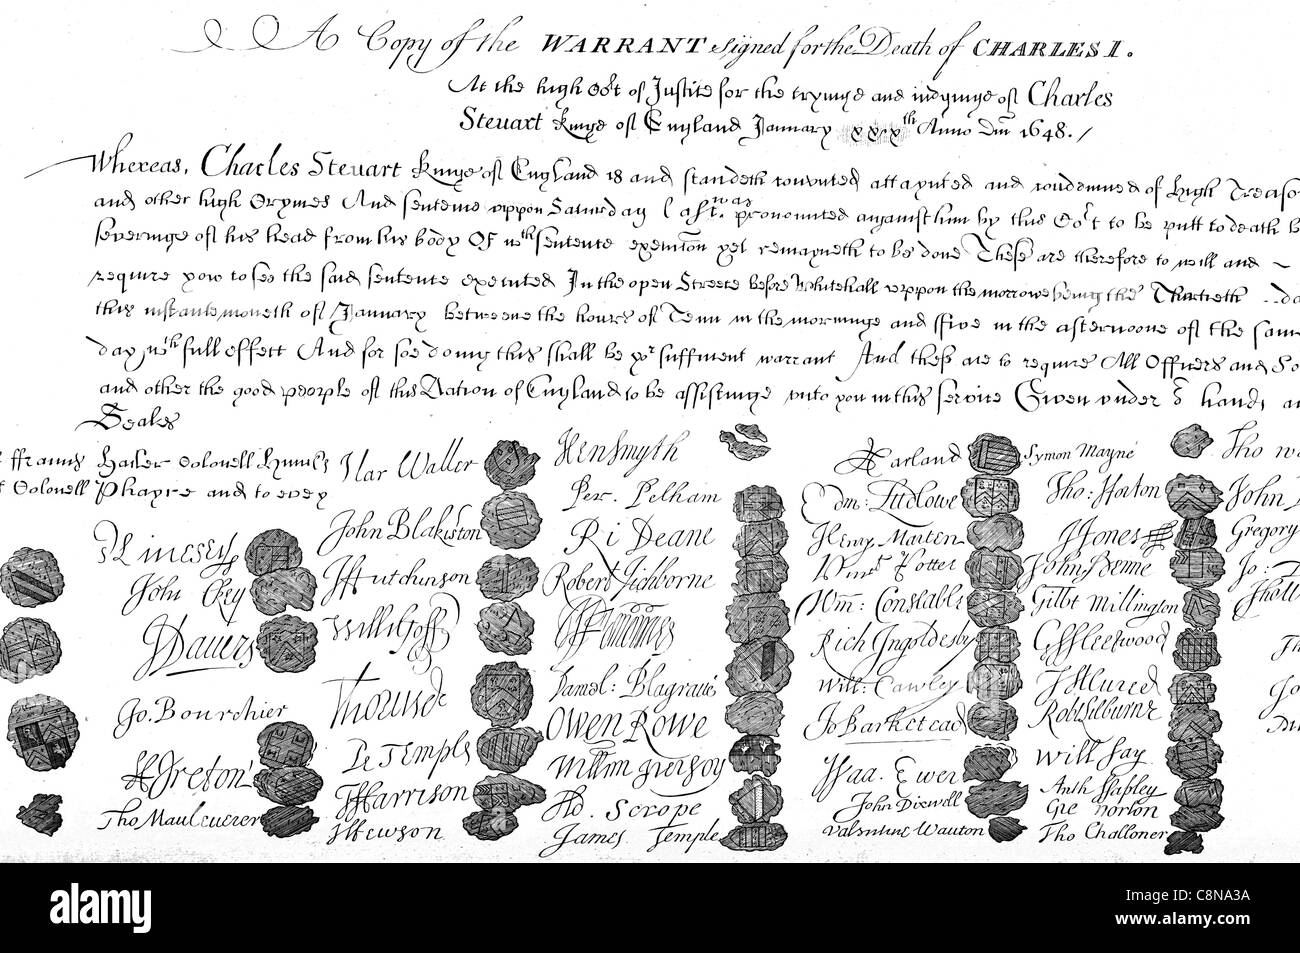 A Copy of the WARRANT signed for the Death of CHARLES I.
At the high Cort of Justice for the tryinge and iudginge of Charles
Steuart Kinge of England January xxixth Anno Dm 1648./
Whereas, Charles Steuart Kinge of England is and standeth convicted attaynted and condemned of High Treason
and other high Crymes And sentence uppon Saturday last was pronounced against him by this Cort to be putt to death by
severinge of his head from his body Of wch sentence execution yet remayneth to be done These are therefore to will and ~
require you to see the said sentence executed In the open Streete before Whitehall uppon the morrowe being the Thirtieth day
this instante moneth of January betweene the hours of Tenn in the morninge and ffive in the afternoone of the same
day wth full effect And for soe doing this shall be yor sufficient warrant And these are to require All Officers and So
and other the good people of this Nation of England to be assistinge unto you in this service Given under or hands an
Seales
ffrancis Hacker Colonell Huncks
Colonell Phayre and to every
H Lincsey
John Okey
J Dauers
Jo. Bourchier
H Ireton
Tho Mauleuerer
Har Waller
John Blakiston
J Hutchinson
Willi Goff
Tho Pride
Pe Temple
T Harrison
J Hewson
Hen Smyth
Per. Pelham
Ri Deane
Robert Tichborne
H Edwardes
Daniel Blagraue
Owen Rowe
William Purefoy
Ad Scrope
James Temple
A Garland
Edm: Ludlowe
Henry Marten
Vinct Potter
Wm: Constable
Rich Ingoldesby
Will: Cawley
Jo Barkstead
Isaa. Ewer
John Dixwell
Valentine Wauton
Symon Mayne
Tho: Horton
J Jones
John Penne
Gilbt Millington
G ffleetwood
J Alured
Robt Lilburne
Will Say
Anth Stapley
Gre Norton
Tho Challoner
Tho
John
Gregory
Jo:
alamy
alamy stock photo
C8NA3A
www.alamy.com